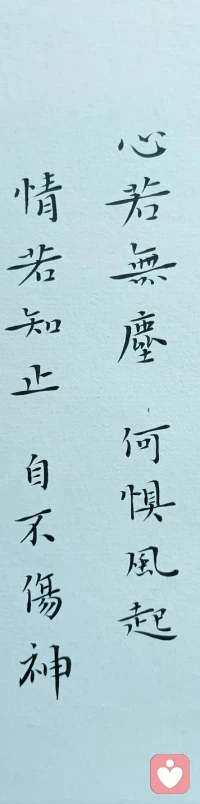 心若無塵 何懼風起
情若知止 自不傷神